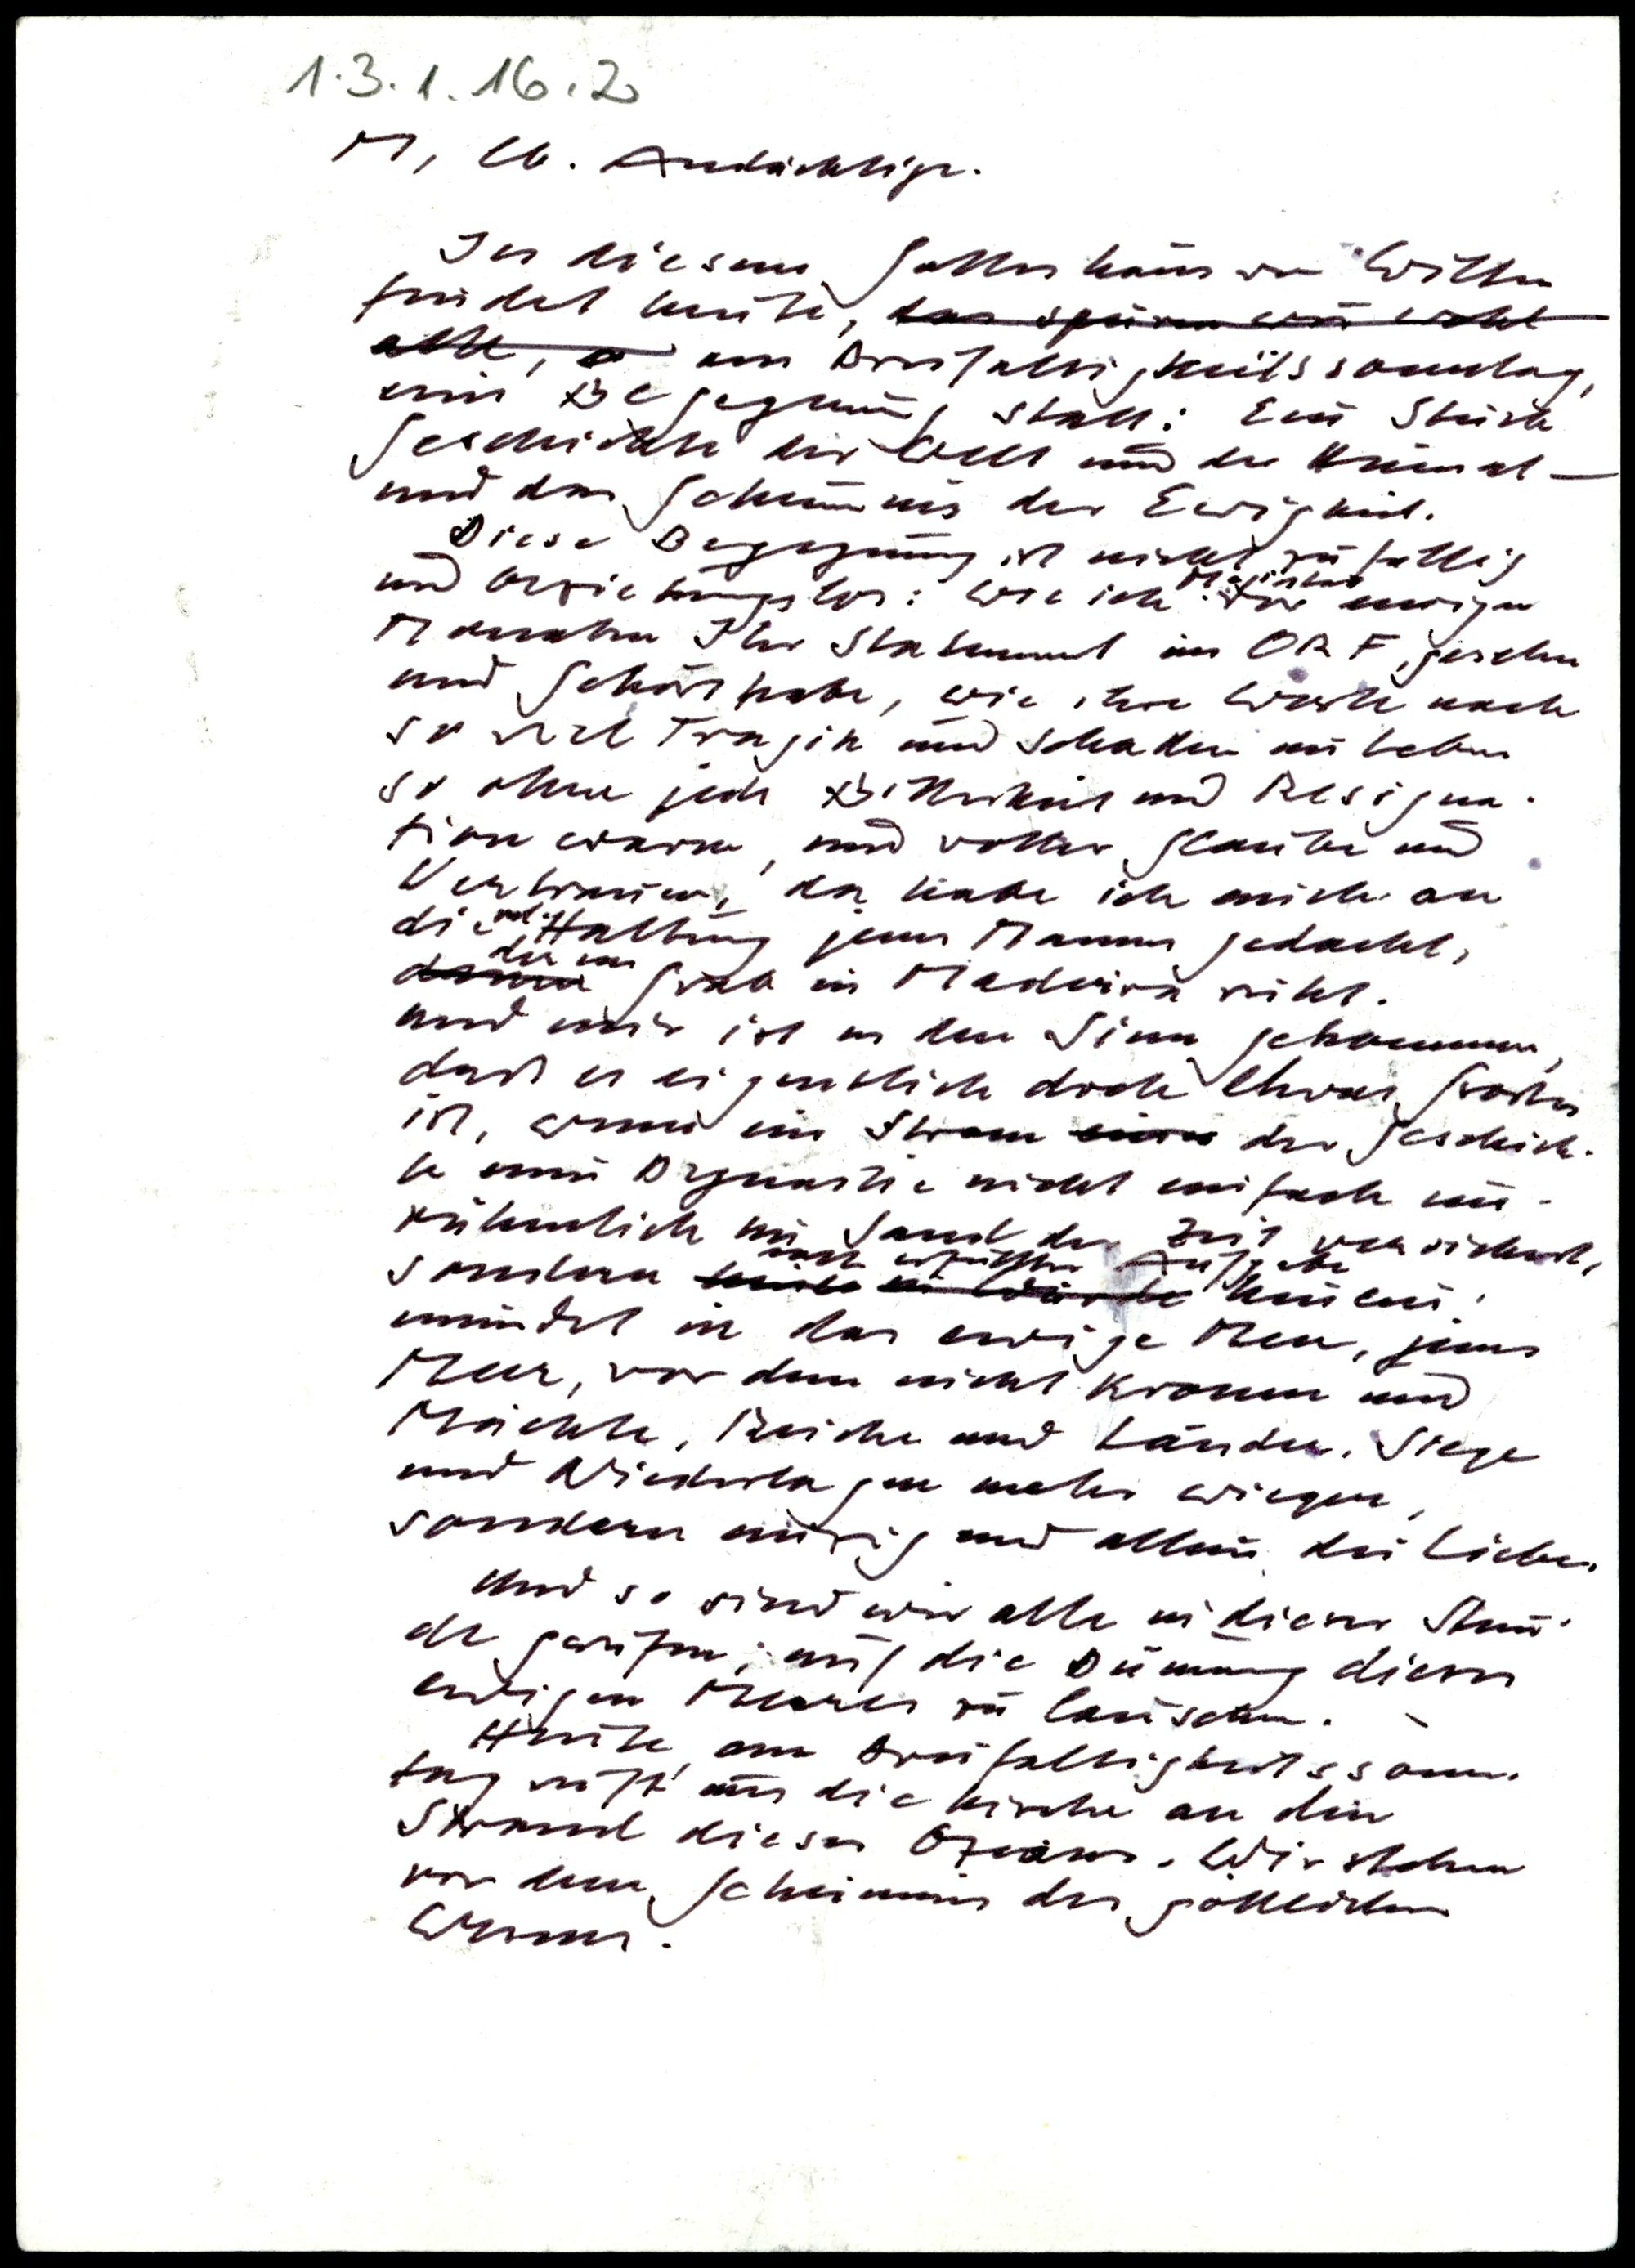 1.3.1.16.2
M, lb. Andächtige.
In diesem Gotteshaus von Wilten
findet heute, das spüren wir wohl
alle, am Dreifaltigkeitssonntag,
eine Begegnung statt: Ein Stück
Geschichte der Welt und der Heimat –
und das Geheimnis der Ewigkeit.
Diese Begegnung ist nicht zufällig
und beziehungslos: Wie ich Majestät vor einigen
Monaten Ihr Statement im ORF, gesehen
und gehört habe, wie ihre Worte nach
so viel Tragik und Schatten im Leben
so ohne jede Bitterkeit und Resigna-
tion waren, und voller Glaube und
Vertrauen, da habe ich mich an
die Haltung jenes Mannes gedacht,
der im Grab in Madeira ruht.
und mir ist in den Sinn gekommen,
daß es eigentlich doch etwas Großes
ist, wenn ein Strom der Geschich-
te einer Dynastie nicht einfach un-
rühmlich im Sand der Zeit versickert,
sondern nach erfüllter Aufgabe hinein
mündet in das ewige Meer, jenes
Meer, vor dem nicht Kronen und
Mächte, Reiche und Länder, Siege
und Niederlagen mehr wiegen,
sondern einzig und allein die Liebe.
Und so sind wir alle in dieser Stun-
de gerufen, auf die Dünung dieses
ewigen Meeres zu lauschen.
Heute am Dreifaltigkeitssonn-
tag ruft uns die Kirche an den
Strand dieses Ozeans. Wir stehen
vor dem Geheimnis des göttlichen
Wesens.